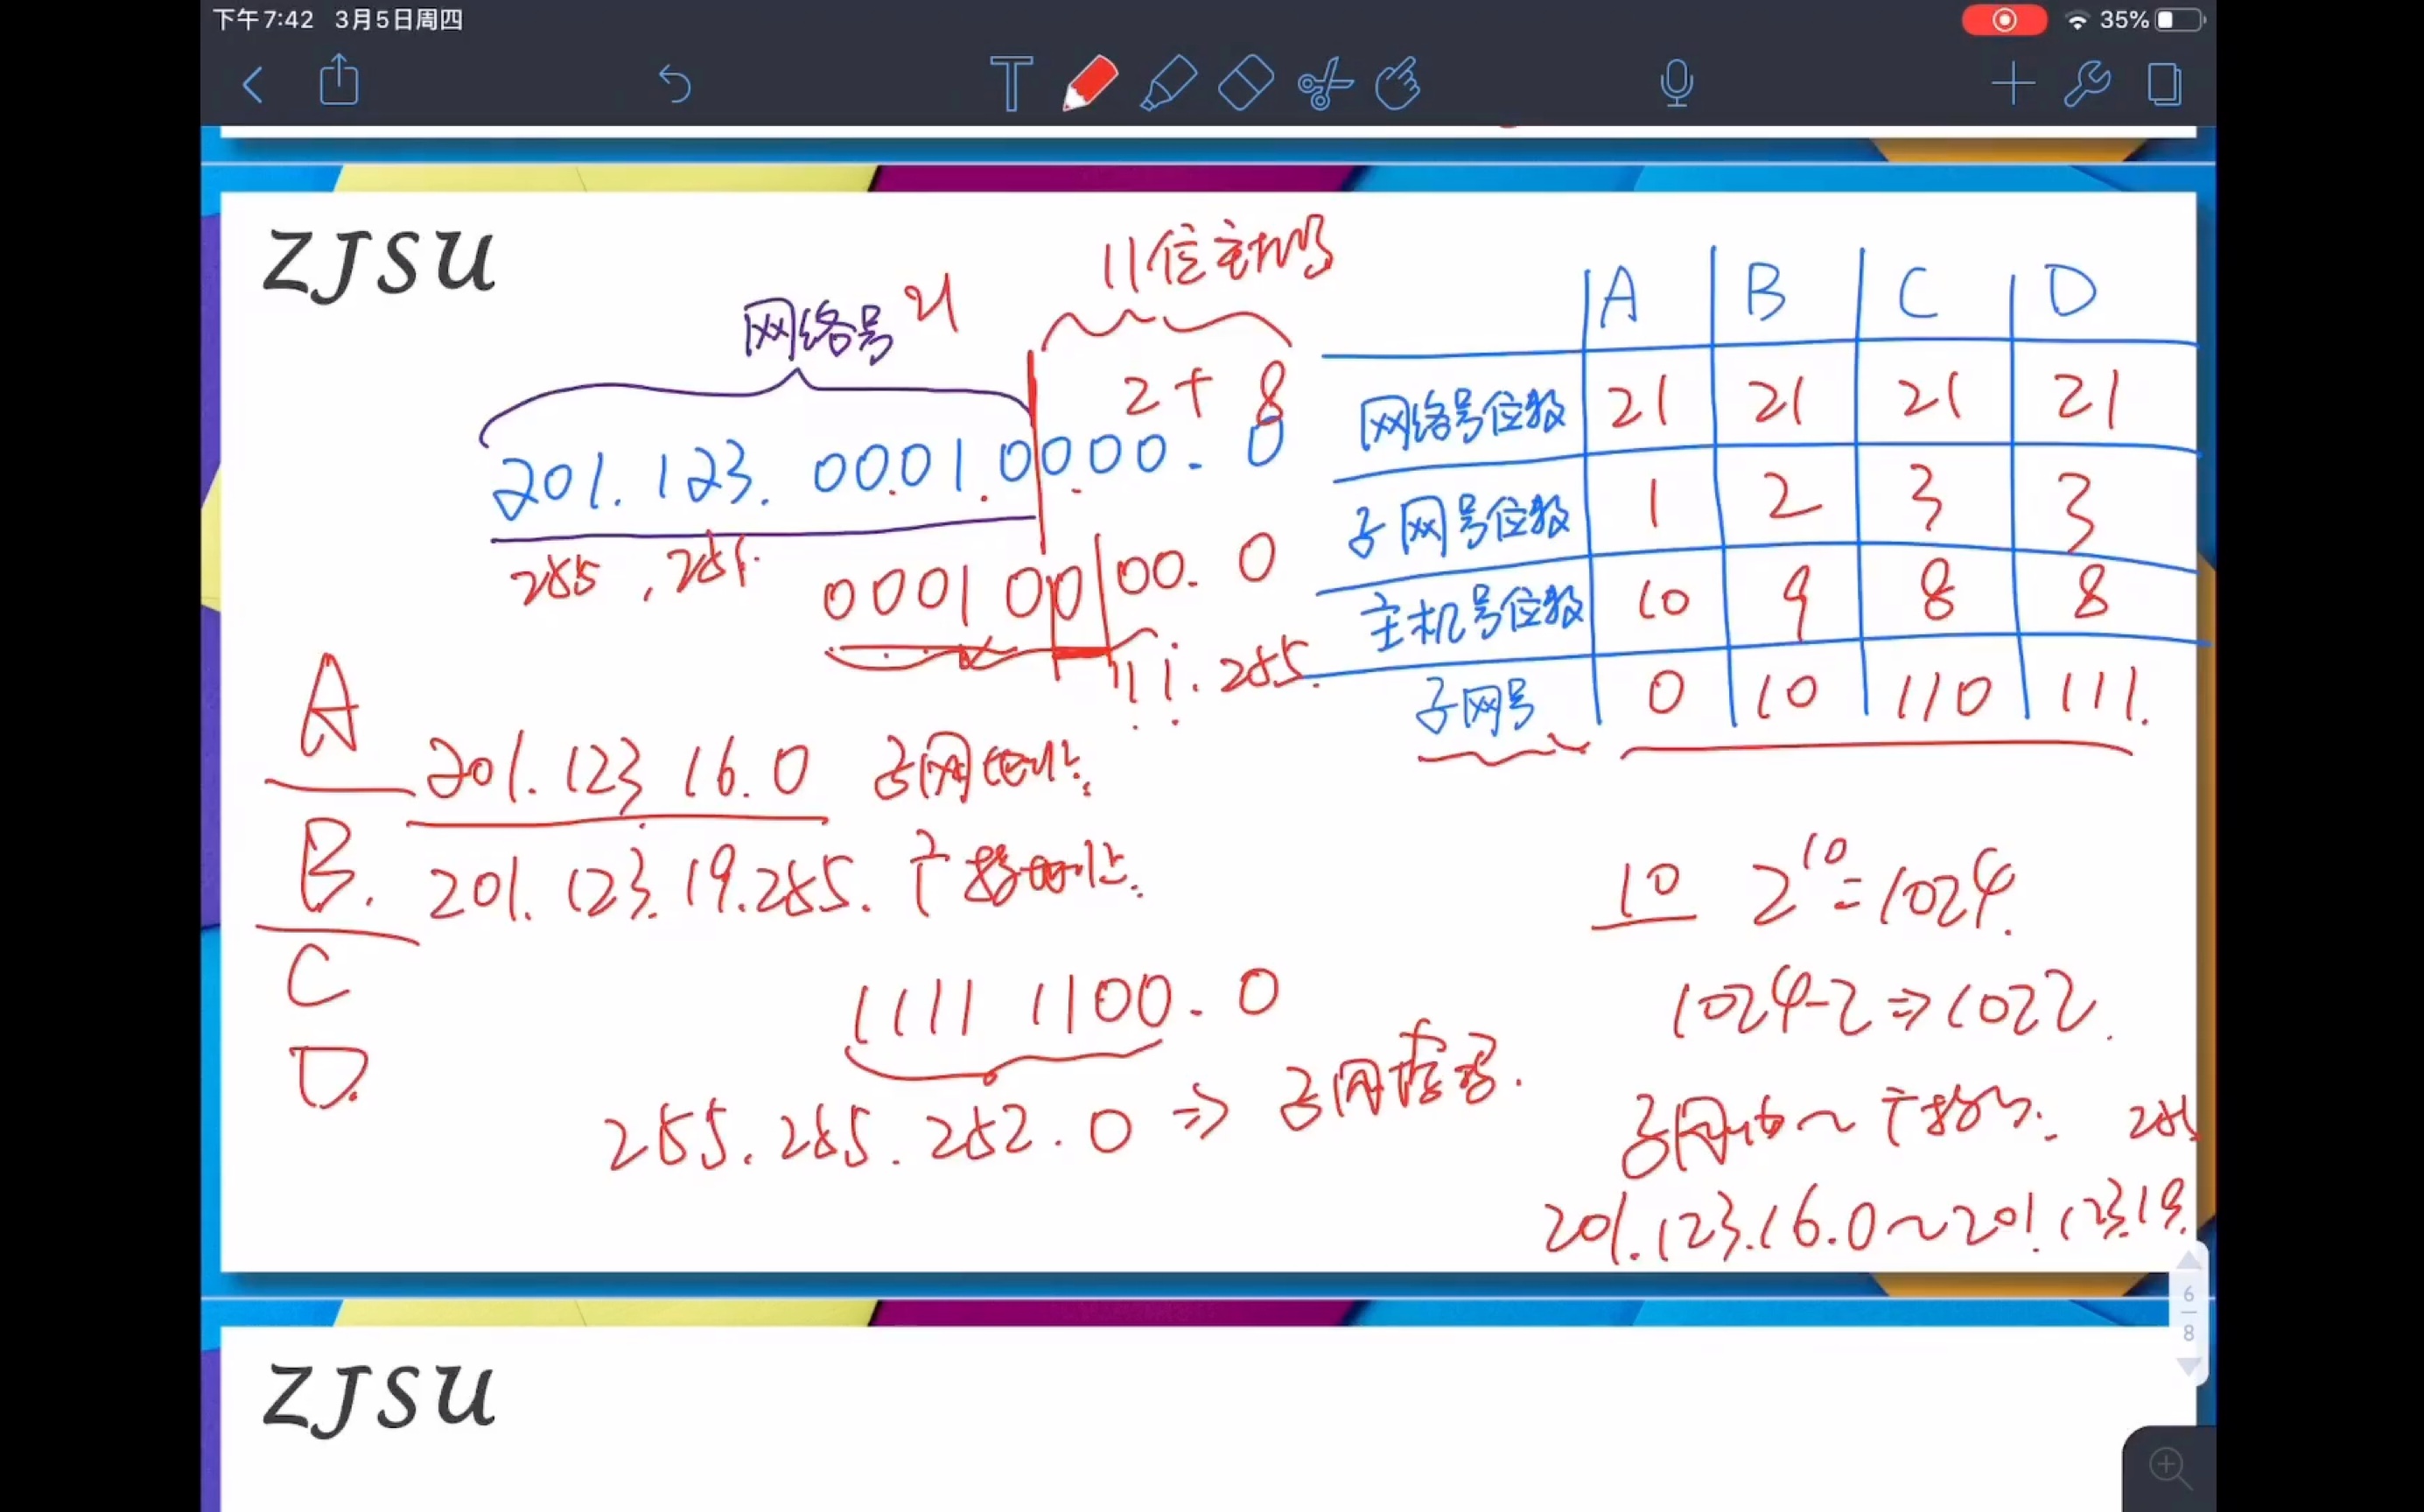 下午7:42 3月5日周四
35%
ZJSU
网络号 21
11位主机号
2+8
201.123.0001.0000.0
255.255.
000100 00.0
11.255.
A B C D
网络号位数 21 21 21 21
子网号位数 1 2 3 3
主机号位数 10 9 8 8
子网号 0 10 110 111.
A
201.123.16.0 子网地址.
B.
201.123.19.255. 广播地址.
C
D.
1111 1100.0
255.255.252.0 ⇒ 子网掩码.
10 2^10=1024.
1024-2⇒1022.
201.123.16.0~201.123.19.
6
8
ZJSU